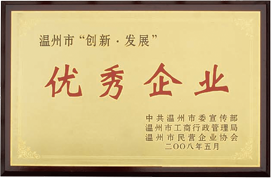 温州市“创新·发展”
优秀企业
中共温州市委宣传部
温州市工商行政管理局
温州市民营企业协会
二〇〇八年五月